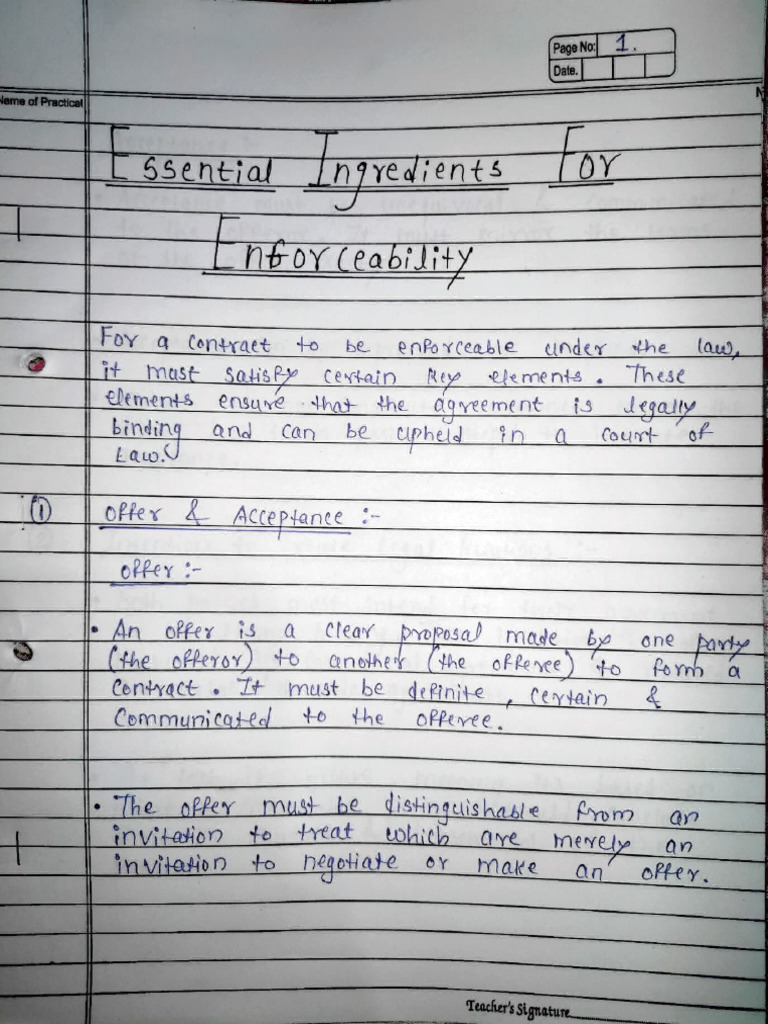 Page No: 1.
Date.
Name of Practical
Essential Ingredients For
Enforceability
For a contract to be enforceable under the law,
it must satisfy certain key elements. These
elements ensure that the agreement is legally
binding and can be upheld in a court of
Law.
① Offer & Acceptance :-
Offer :-
• An offer is a clear proposal made by one party
(the offeror) to another (the offeree) to form a
contract. It must be definite, certain &
communicated to the offeree.
• The offer must be distinguishable from an
invitation to treat which are merely an
invitation to negotiate or make an offer.
Teacher's Signature